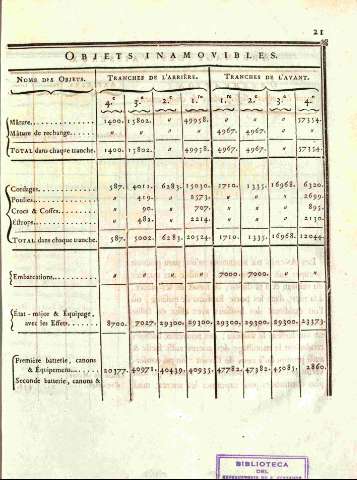 21
OBJETS INAMOVIBLES.
NOMS DES OBJETS. TRANCHES DE L'ARRIÈRE. TRANCHES DE L'AVANT.
4.e 3.e 2.e 1.re 1.re 2.e 3.e 4.e
Mâture......... 1400. 15802. " 49958. " " " 57354.
Mâture de rechange........ " " " " 4967. 4967. " "
TOTAL dans chaque tranche. 1400. 15802. " 49958. 4967. 4967. " 57354.
Cordages......... 587. 4011. 6283. 15030. 1710. 1335. 16968. 6320.
Poulies......... " 419. " 2573. " " " 2699.
Crocs & Cosses......... " 90. " 707. " " " 895.
Estrops......... " 482. " 2214. " " " 2130.
TOTAL dans chaque tranche. 587. 5002. 6283. 20524. 1710. 1335. 16968. 12044.
Embarcations......... " " " " 7000. 7000. " "
État-major & Équipage,
avec les Effets... 8700. 7027. 29300. 29300. 29300. 29300. 29300. 23373.
Première batterie, canons
& Équipement... 20377. 40971. 40439. 40935. 47782. 47382. 45083. 2860.
Seconde batterie, canons &
BIBLIOTECA
DEL